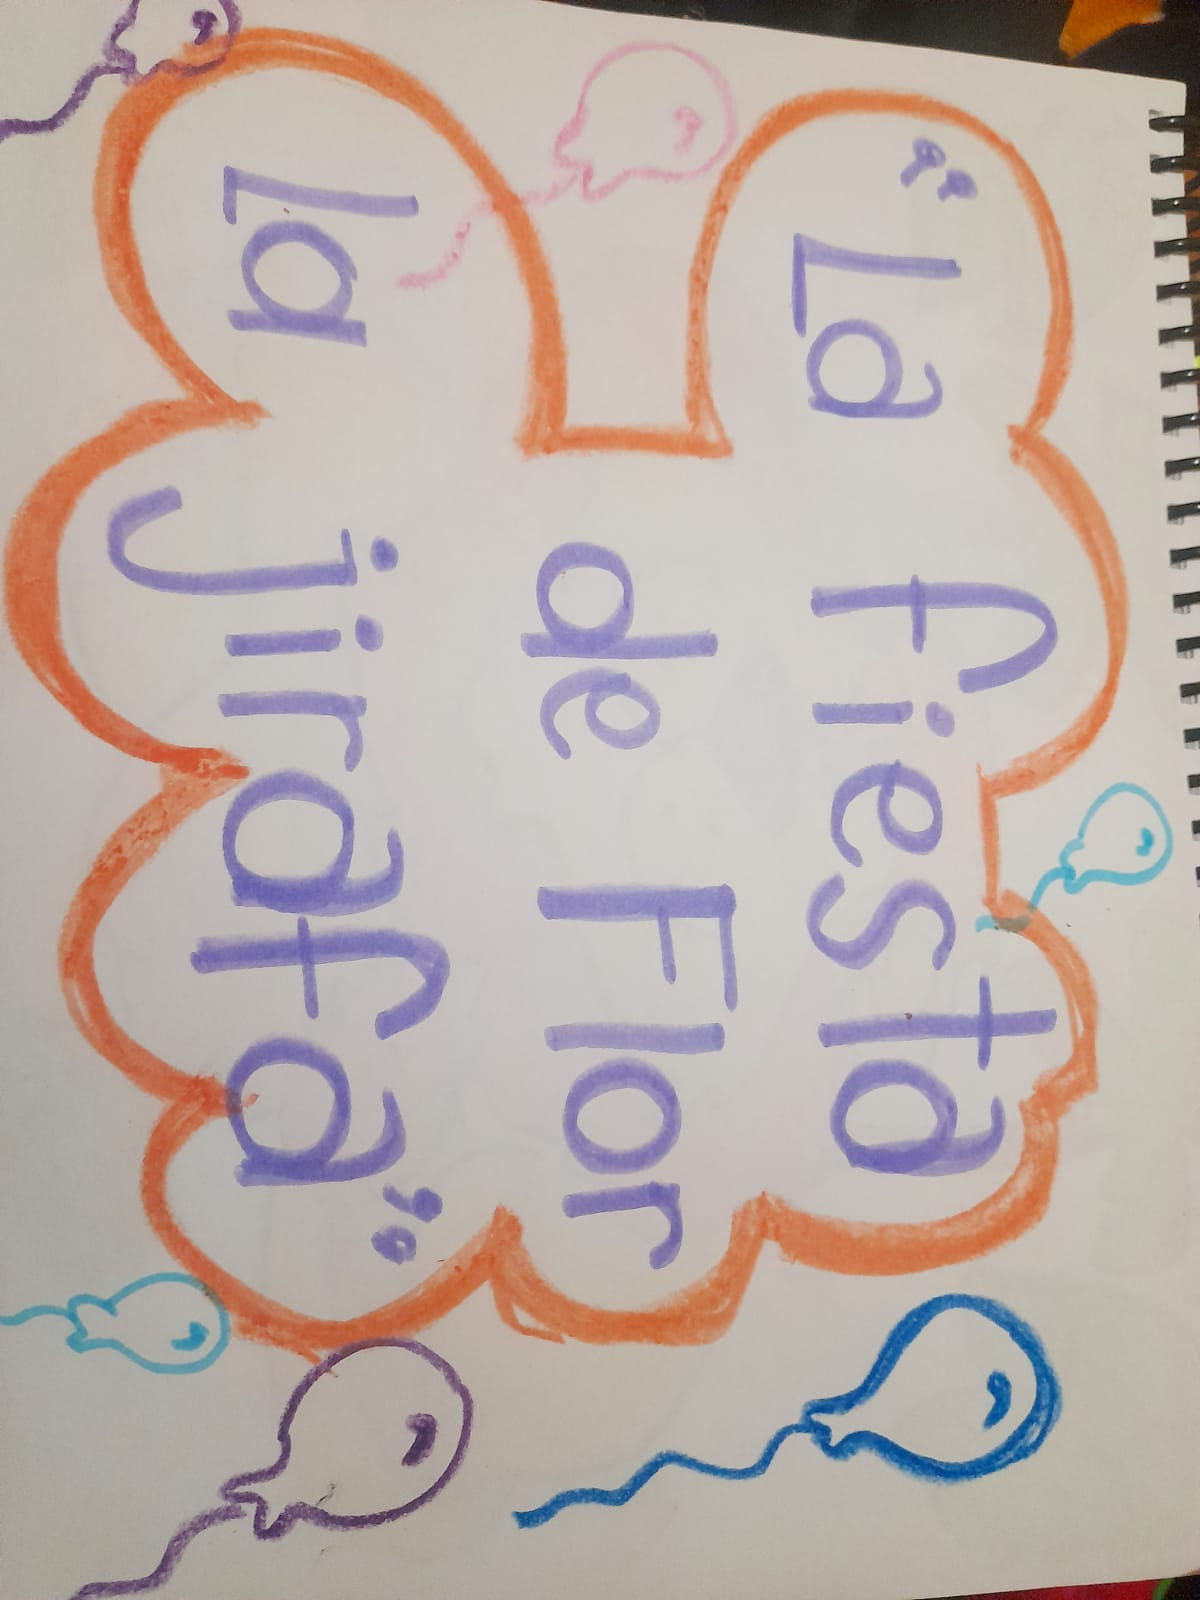 "La fiesta
de Flor
la jirafa"